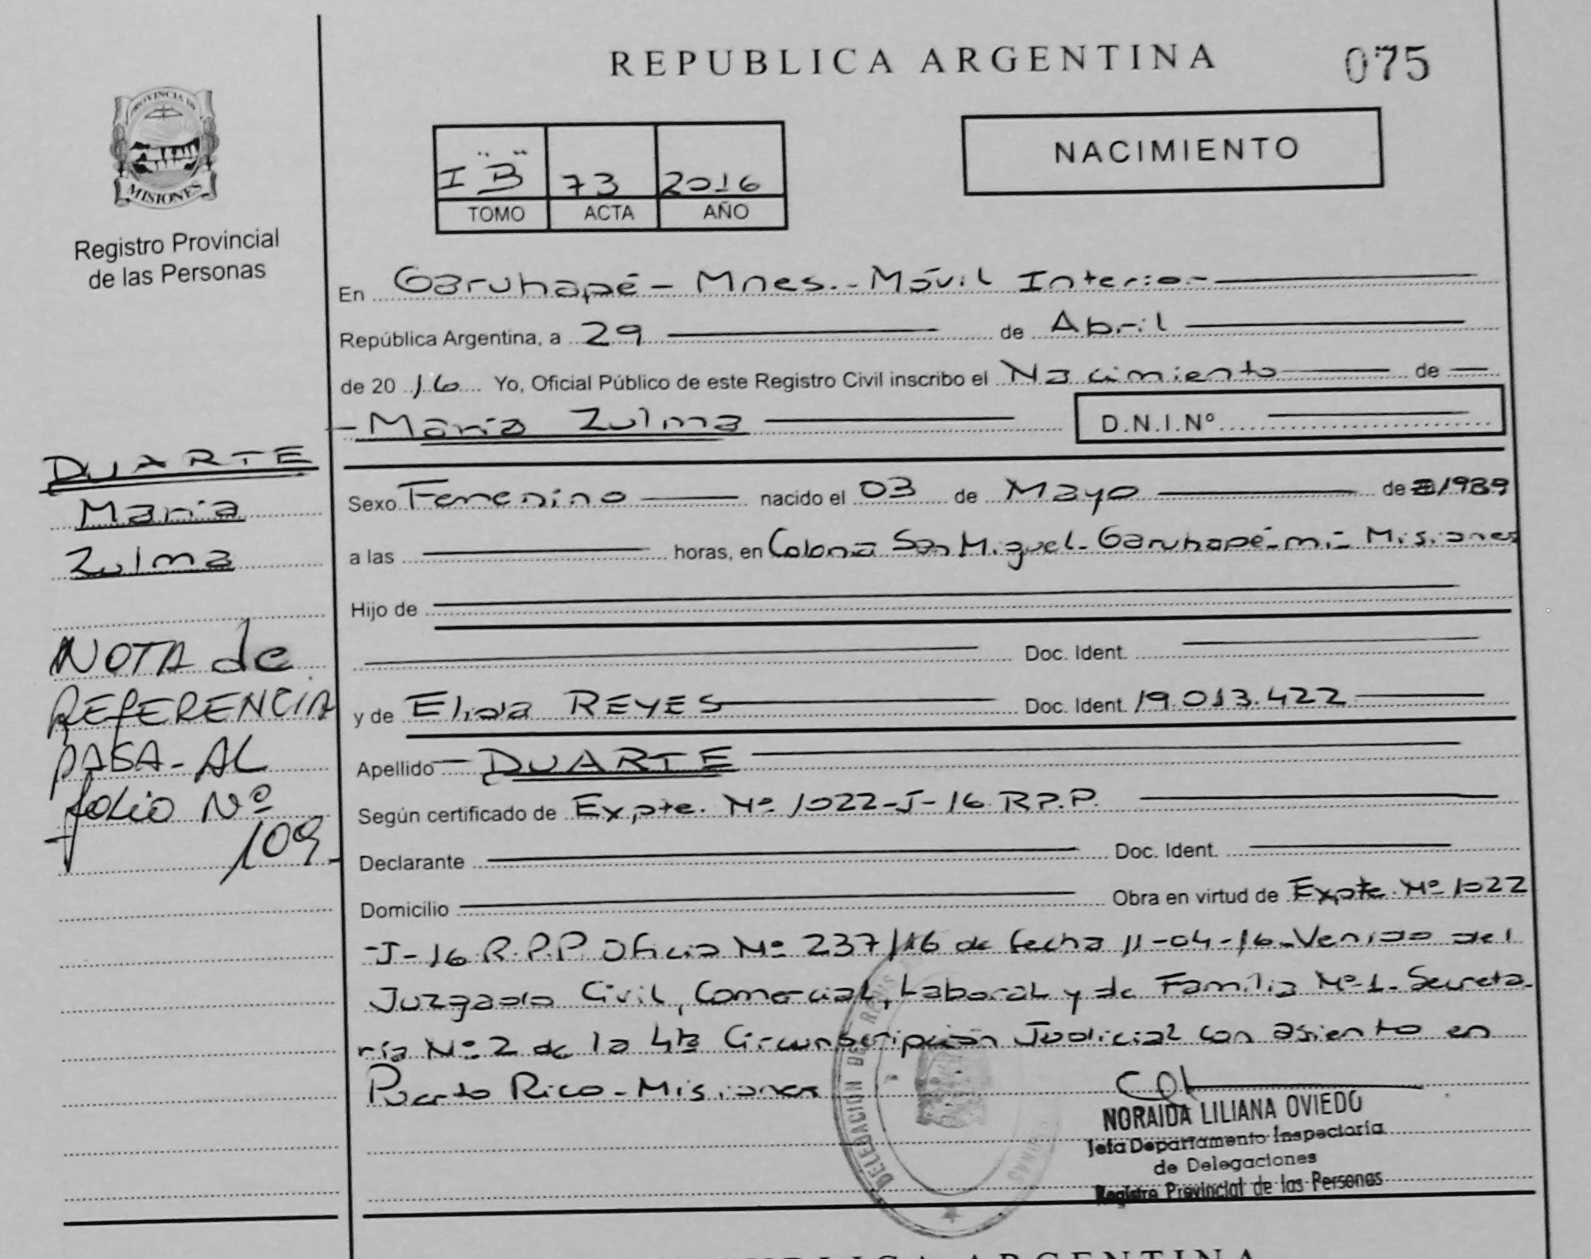 REPUBLICA ARGENTINA
075
PROVINCIA DE
MISIONES
Registro Provincial
de las Personas
I "B" 73 2016
TOMO ACTA AÑO
NACIMIENTO
En Garuhapé - Mnes. - Móvil Interior
República Argentina, a 29 de Abril
de 2016 Yo, Oficial Público de este Registro Civil inscribo el Nacimiento de
- María Zulma
D.N.I.Nº
DUARTE
María
Zulma
NOTA de
REFERENCIA
PASA-AL
folio Nº
109
Sexo Femenino nacido el 03 de Mayo de 1989
a las horas, en Colonia San Miguel - Garuhapé-mi- Misiones
Hijo de
Doc. Ident.
y de Elida REYES Doc. Ident. 19.013.422
Apellido - DUARTE
Según certificado de Expte. Nº 1022-J-16 R.P.P.
Declarante Doc. Ident.
Domicilio Obra en virtud de Expte. Nº 1022
-J-16 R.P.P. Oficio Nº 237/16 de fecha 11-04-16. Venido del
Juzgado Civil, Comercial, Laboral y de Familia Nº 1 - Secreta-
ría Nº 2 de la 4ta Circunscripción Judicial con asiento en
Puerto Rico - Misiones
DELEGACIÓN DE
NORAIDA LILIANA OVIEDO
Jefa Departamento Inspectoría
de Delegaciones
Registro Provincial de las Personas
REPUBLICA ARGENTINA